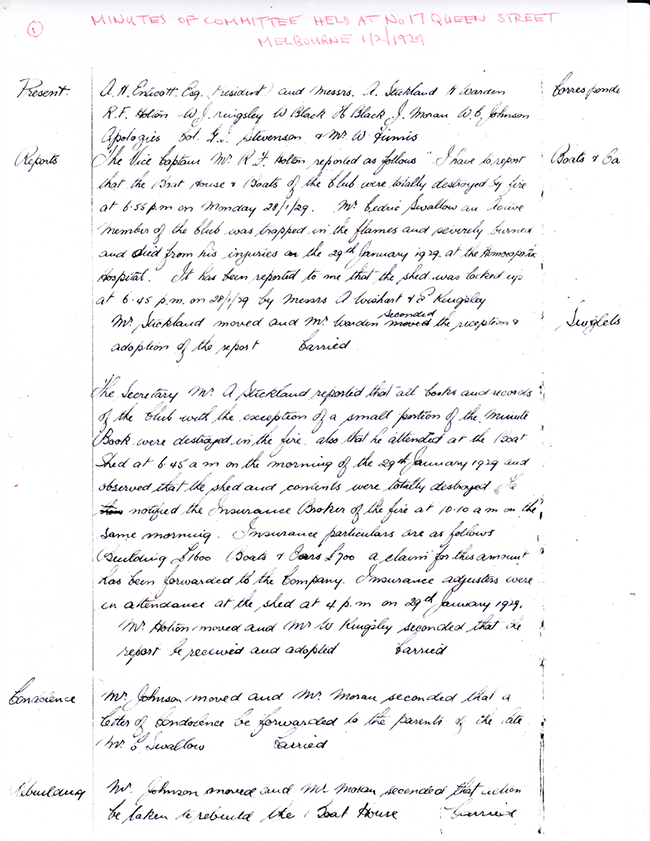 ①
MINUTES OF COMMITTEE HELD AT No 17 QUEEN STREET
MELBOURNE 1/2/1929
Present
A. H. Endicott. Esq. (President) and Messrs. A. Stickland H Warden
R. F. Holton W. J. Kingsley W Black H Black J. Moran W. E. Johnson
Apologies Col. G. I. Stevenson & Mr W Finnis
Reports
The Vice Captain Mr R F Holton reported as follows "I have to report
that the Boat House & Boats of the Club were totally destroyed by fire
at 6.55 p.m on Monday 28/1/29. Mr Cedric Swallow an active
member of the Club was trapped in the flames and severely burned
and died from his injuries on the 29th January 1929 at the Homoeopathic
Hospital. It has been reported to me that the shed was locked up
at 6.45 p.m. on 28/1/29 by Messrs A Wishart & Kingsley
Mr Stickland moved and Mr Warden seconded moved the reception &
adoption of the report Carried
The Secretary Mr A Stickland reported that all books and records
of the Club with the exception of a small portion of the Minute
Book were destroyed in the fire, also that he attended at the Boat
Shed at 6.45 a m on the morning of the 29th January 1929 and
observed that the shed and contents were totally destroyed. He
notified the Insurance Broker of the fire at 10.10 a m on the
same morning. Insurance particulars are as follows
Building £1600 Boats & Oars £700 a claim for this amount
has been forwarded to the Company. Insurance adjusters were
in attendance at the shed at 4 p.m on 29th January 1929.
Mr Holton moved and Mr W Kingsley seconded that the
report be received and adopted Carried
Condolence
Mr. Johnson moved and Mr. Moran seconded that a
letter of Condolence be forwarded to the parents of the late
Mr C Swallow Carried
Rebuilding
Mr. Johnson moved and Mr Moran seconded that action
be taken to rebuild the Boat House Carried
Corresponde
Boats & Oa